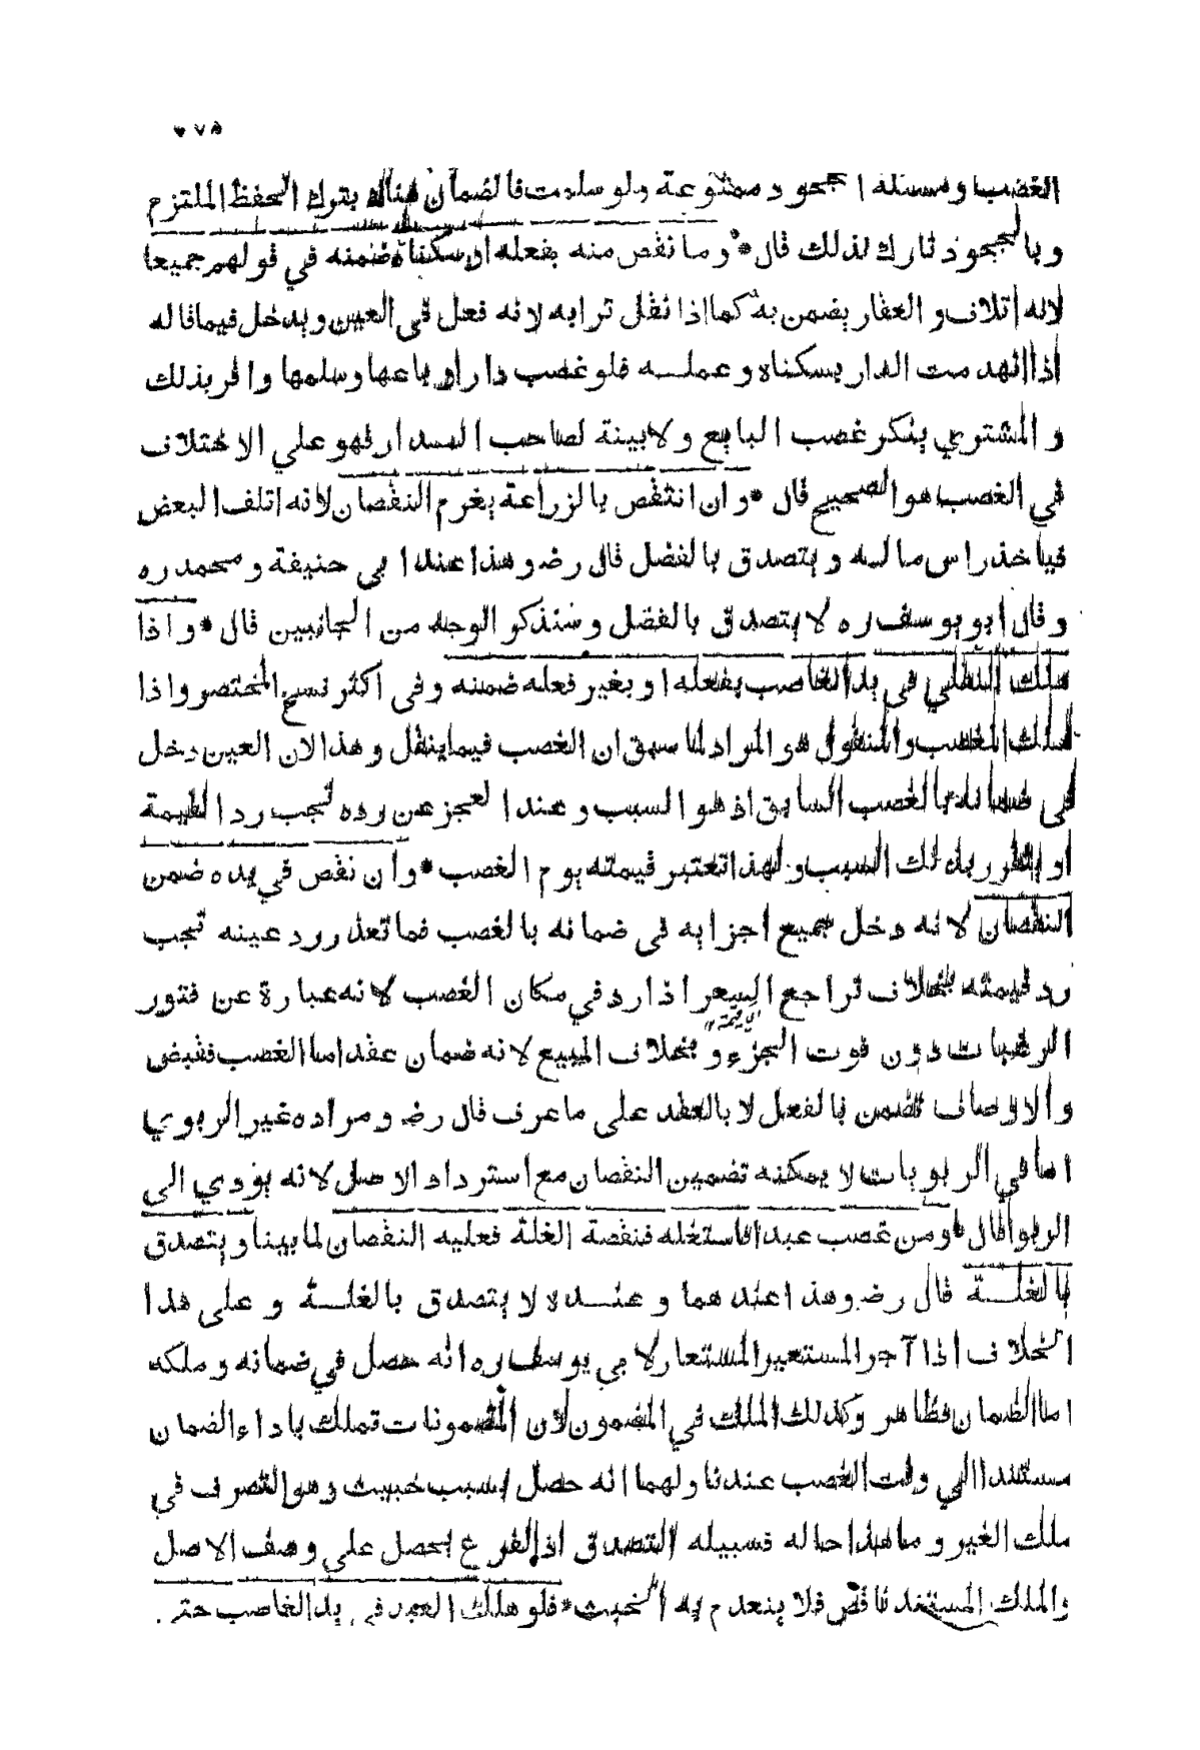 ٥٧٥
الغصب ومسئلة الجحود ممنوعة ولو سلمت فالضمان هناك بترك الحفظ الملتزم
وبالجحود تارك لذلك قال * وما نقص منه بفعله او سكناه ضمنه في قولهم جميعا
لانه اتلاف والعقار يضمن به كما اذا نقل ترابه لانه فعل في العين ويدخل فيما قاله
اذا انهدمت الدار بسكناه وعمله فلو غصب دارا وباعها وسلمها واقر بذلك
والمشتري ينكر غصب البايع ولا بينة لصاحب الدار فهو علي الاختلاف
في الغصب هو الصحيح قال * وان انتقص بالزراعة يغرم النقصان لانه اتلف البعض
فياخذ راس ماله ويتصدق بالفضل قال رضـ وهذا عند ابي حنيفة ومحمد ره
وقال ابو يوسف ره لا يتصدق بالفضل وسنذكر الوجه من الجانبين قال * واذا
هلك النقلي في يد الغاصب بفعله او بغير فعله ضمنه وفي اكثر نسخ المختصر واذا
هلك الغصب والمنقول هو المراد لما سبق ان الغصب فيما ينقل وهذا لان العين دخل
في ضمانه بالغصب السابق اذ هو السبب وعند العجز عن رده تجب رد القيمة
او يتقرر بذلك السبب ولهذا تعتبر قيمته يوم الغصب * وان نقص في يده ضمن
النقصان لانه دخل جميع اجزايه في ضمانه بالغصب فما تعذر رد عينه تجب
رد قيمته بخلاف تراجع السعر اذا رد في مكان الغصب لانه عبارة عن فتور
الرغبات دون فوت الجزء و بخلاف المبيع لانه ضمان عقد اما الغصب فقبض
والاوصاف تضمن بالفعل لا بالعقد علي ما عرف قال رضـ ومراده غير الربوي
اما في الربويات لا يمكنه تضمين النقصان مع استرداد الاصل لانه يؤدي الى
الربوا قال * ومن غصب عبدا فاستغله فنقصة الغلة فعليه النقصان لما بينا ويتصدق
بالغلة قال رضـ وهذا عندهما وعنده لا يتصدق بالغلة و على هذا
الخلاف اذا آجر المستعير المستعار لابي يوسف ره انه حصل في ضمانه وملكه
اما الضمان فظاهر وكذلك الملك في المضمون لان المضمونات تملك باداء الضمان
مستندا الي وقت الغصب عندنا ولهما انه حصل بسبب خبيث وهو التصرف في
ملك الغير وما هذا حاله فسبيله التصدق اذ الفرع يحصل علي وصف الاصل
والملك المستند ناقص فلا ينعدم به الخبث * فلو هلك العبد في يد الغاصب حتى